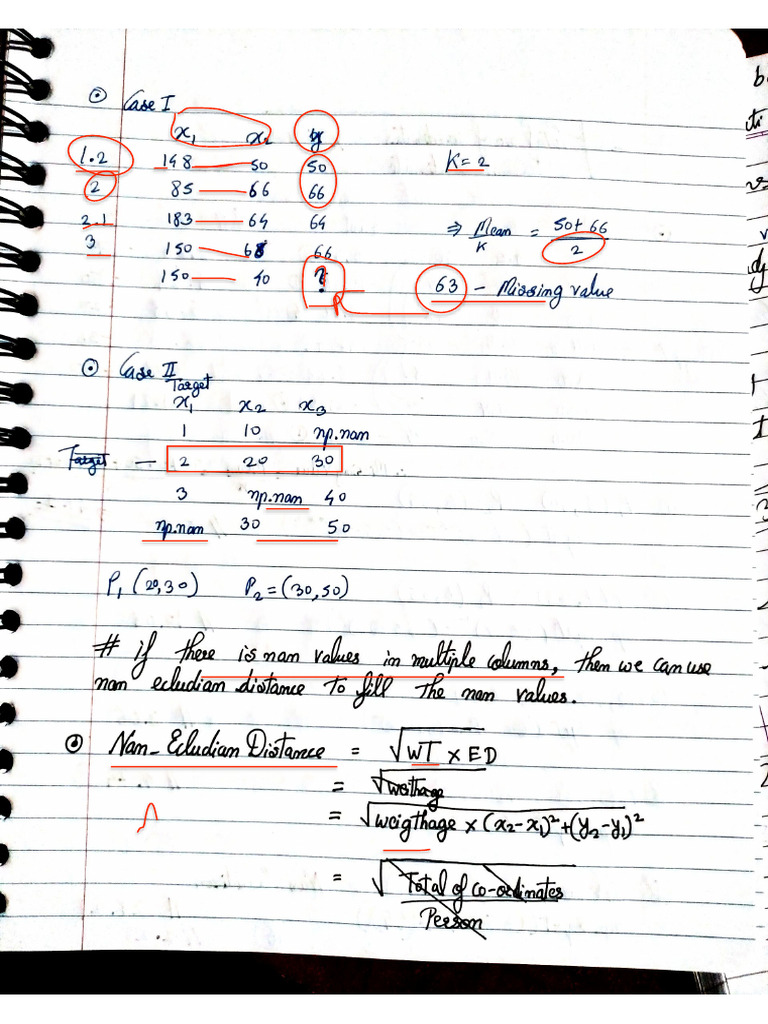 Case I
x₁ x₂ y
1.2 148 — 50 50 K = 2
2 85 — 66 66
2.1 183 — 64 64 ⇒ Mean/K = (50 + 66)/2
3 150 — 68 66
150 — 40 ? 63 - Missing value
Case II
Target
x₁ x₂ x₃
1 10 np.nan
Target — 2 20 30
3 np.nan 40
np.nan 30 50
P₁ (20,30) P₂ = (30,50)
# if there is nan values in multiple columns, then we can use
nan ecludian distance to fill the nan values.
Nan-Ecludian Distance = √(WT × ED)
= √weithage
= √(weigthage × (x₂-x₁)²+(y₂-y₁)²
= √(Total of co-ordinates
Person